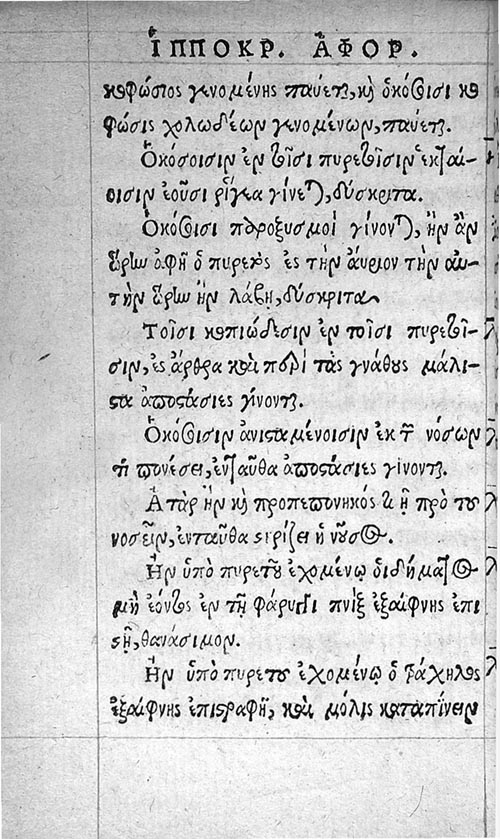 ἹΠΠΟΚΡ. ἈΦΟΡ.
κωφώσιος γενομένης παύεται, καὶ ὁκόσοισι κω
φώσις χολωδέων γενομένων, παύεται.
Ὁκόσοισιν ἐν τοῖσι πυρετοῖσιν ἑκταί-
οισιν ἐοῦσι ῥίγεα γίνεται, δύσκριτα.
Ὁκόσοισι παροξυσμοὶ γίνονται, ἣν ἂν
ὥρην ἀφῇ ὁ πυρετὸς ἐς τὴν ἄυριον τὴν αὐ-
τὴν ὥρην ἢν λάβῃ, δύσκριτα.
Τοῖσι κοπιώδεσιν ἐν τοῖσι πυρετοῖ-
σιν, ἐς ἄρθρα καὶ περὶ τὰς γνάθους μάλι-
στα ἀποστάσιες γίνονται.
Ὁκόσοισιν ἀνισταμένοισιν ἐκ τῶν νόσων
τὶ πονέσει, ἐνταῦθα ἀποστάσιες γίνονται.
Ἀτὰρ ἢν καὶ προπεπονηκός τι ᾖ πρὸ τοῦ
νοσεῖν, ἐνταῦθα στηρίζει ἡ νοῦσος.
Ἢν ὑπὸ πυρετοῦ ἐχομένῳ ὀιδήματος
μὴ ἐόντος ἐν τῇ φάρυγγι πνὶξ ἐξαίφνης ἐπι
στῇ, θανάσιμον.
Ἢν ὑπὸ πυρετοῦ ἐχομένῳ ὁ τράχηλος
ἐξαίφνης ἐπιστραφῇ, καὶ μόλις καταπίνειν